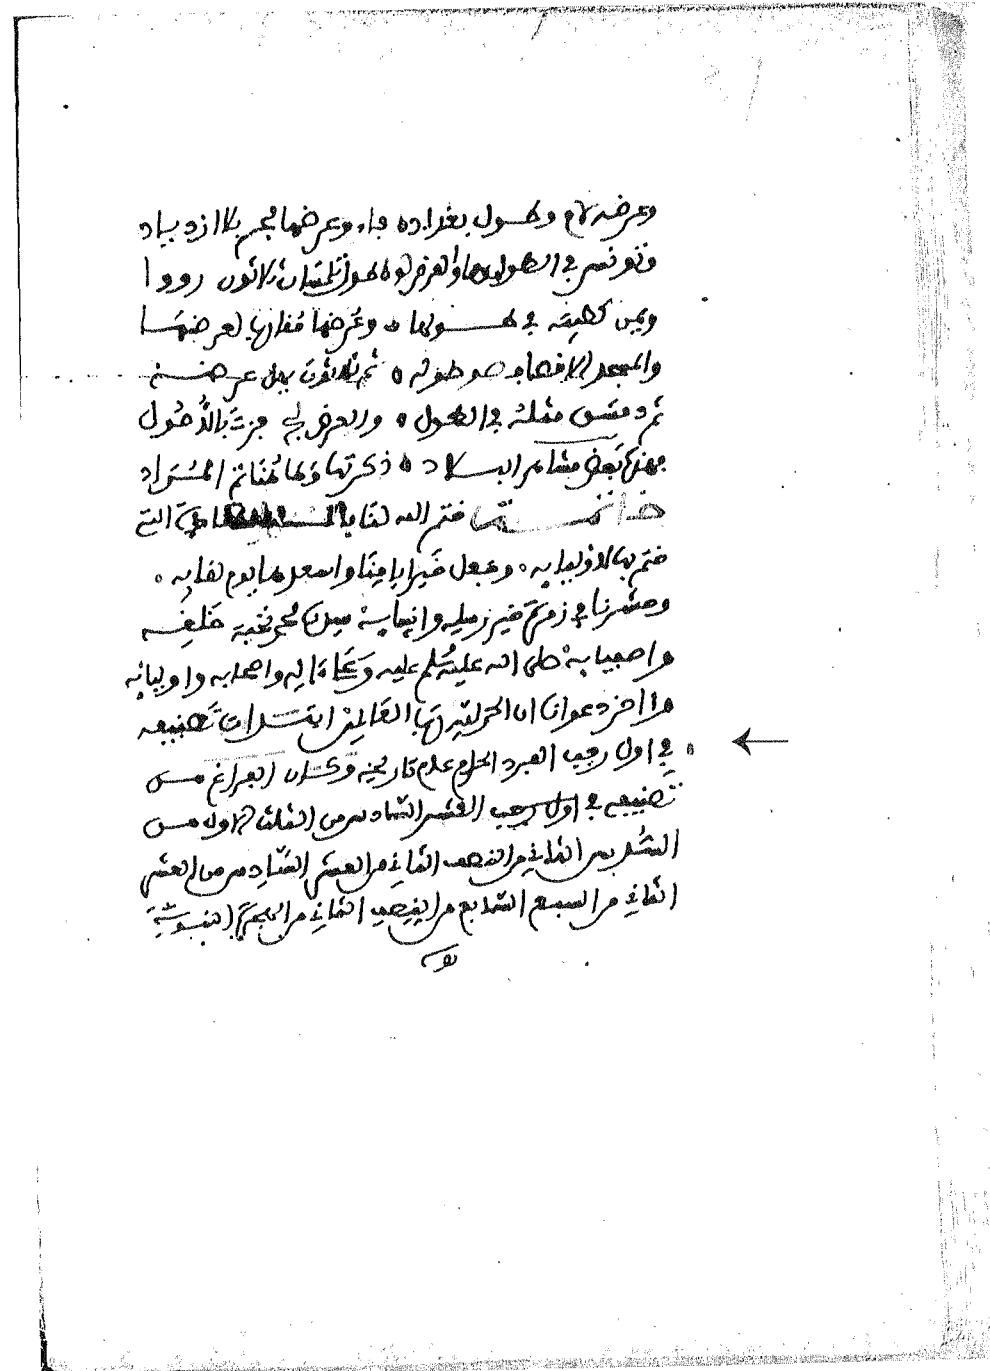 وعرضه لام وطول بغداد فاء وعرضها لجم بلا ازدياد
وتونس في الطول والعرض لو طول تلمسان ثلاثون رووا
في طولها وعرضها
والمسجد الاقصا هو طوله ثم ثلاثون بدل عرضه
ثم دمشق مثله في الطول والعرض لج فزت بالدخول
فهذه بعض مشاهر البلاد ذكرتها وها هنا تم المراد
خاتمة ختم الله لنا بالتي
ختم بها لاوليايه وجعل خير ايامنا واسعدها يوم لقايه
وحشرنا في زمرة خير رسله وانبيايه سيدنا محمد نخبة خلقه
واصفيايه صلى الله عليه وسلم عليه وعلى ءاله واصحابه واوليائه
واخر دعوانا ان الحمد لله رب العالمين ابتدات تصنيفه
في اول رجب الفرد الحرام عام تاريخه وكان الفراغ من
تصنيفه في اول رجب العشر السادس من الثلث الاول من
السدس الثاني من النصف الثاني من العشر السادس من العشر
الثاني من السبع السابع من النصف الثاني من الهجرة النبوية